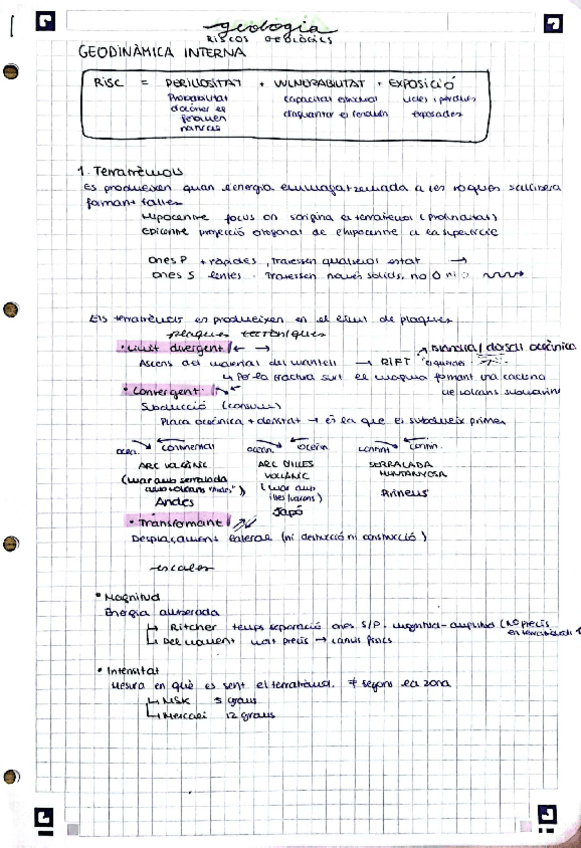 geologia
RISCOS GEOLÒGICS
GEODINÀMICA INTERNA
RISC = PERILLOSITAT + VULNERABILITAT + EXPOSICIÓ
Probabilitat capacitat estructural vides i pèrdues
d'ocórrer el d'aguantar el fenomen exposades
fenomen
natural
1. Terratrèmols
Es produeixen quan l'energia emmagatzemada a les roques s'allibera
formant falles
Hipocentre focus on s'origina el terratrèmol (profunditat)
Epicentre projecció ortogonal de l'hipocentre a la superfície
ones P + ràpides, travessen qualsevol estat →
ones S lentes. Travessen només sòlids, no
Els terratrèmols es produeixen en el límit de plaques
plaques tectòniques
• Límit divergent ← →
Ascens del material del mantell → RIFT Islàndia / dorsal oceànica
↳ Per la fractura surt el magma formant una cadena
de volcans submarins
• Convergent: → ←
Subducció (consum)
Placa oceànica + densitat → és la que es subdueix primer
ocean. continental ocean. oceàn contin. contin.
ARC VOLCÀNIC ARC D'ILLES SERRALADA
(mar amb serralada VOLCÀNIC MUNTANYOSA
amb volcans "Andes") (mar amb Pirineus
Andes illes volcans)
Japó
• Transformant
Desplaçament lateral (ni destrucció ni construcció)
escales
• Magnitud
Energia alliberada
↳ Ritcher temps separació ones S/P. magnitud-amplitud (NO precís
en terratrèmols ↑
↳ Del moment més precís → canvis físics
• Intensitat
Mesura en què es sent el terratrèmol. ≠ segons la zona
↳ MSK 5 graus
↳ Mercali 12 graus